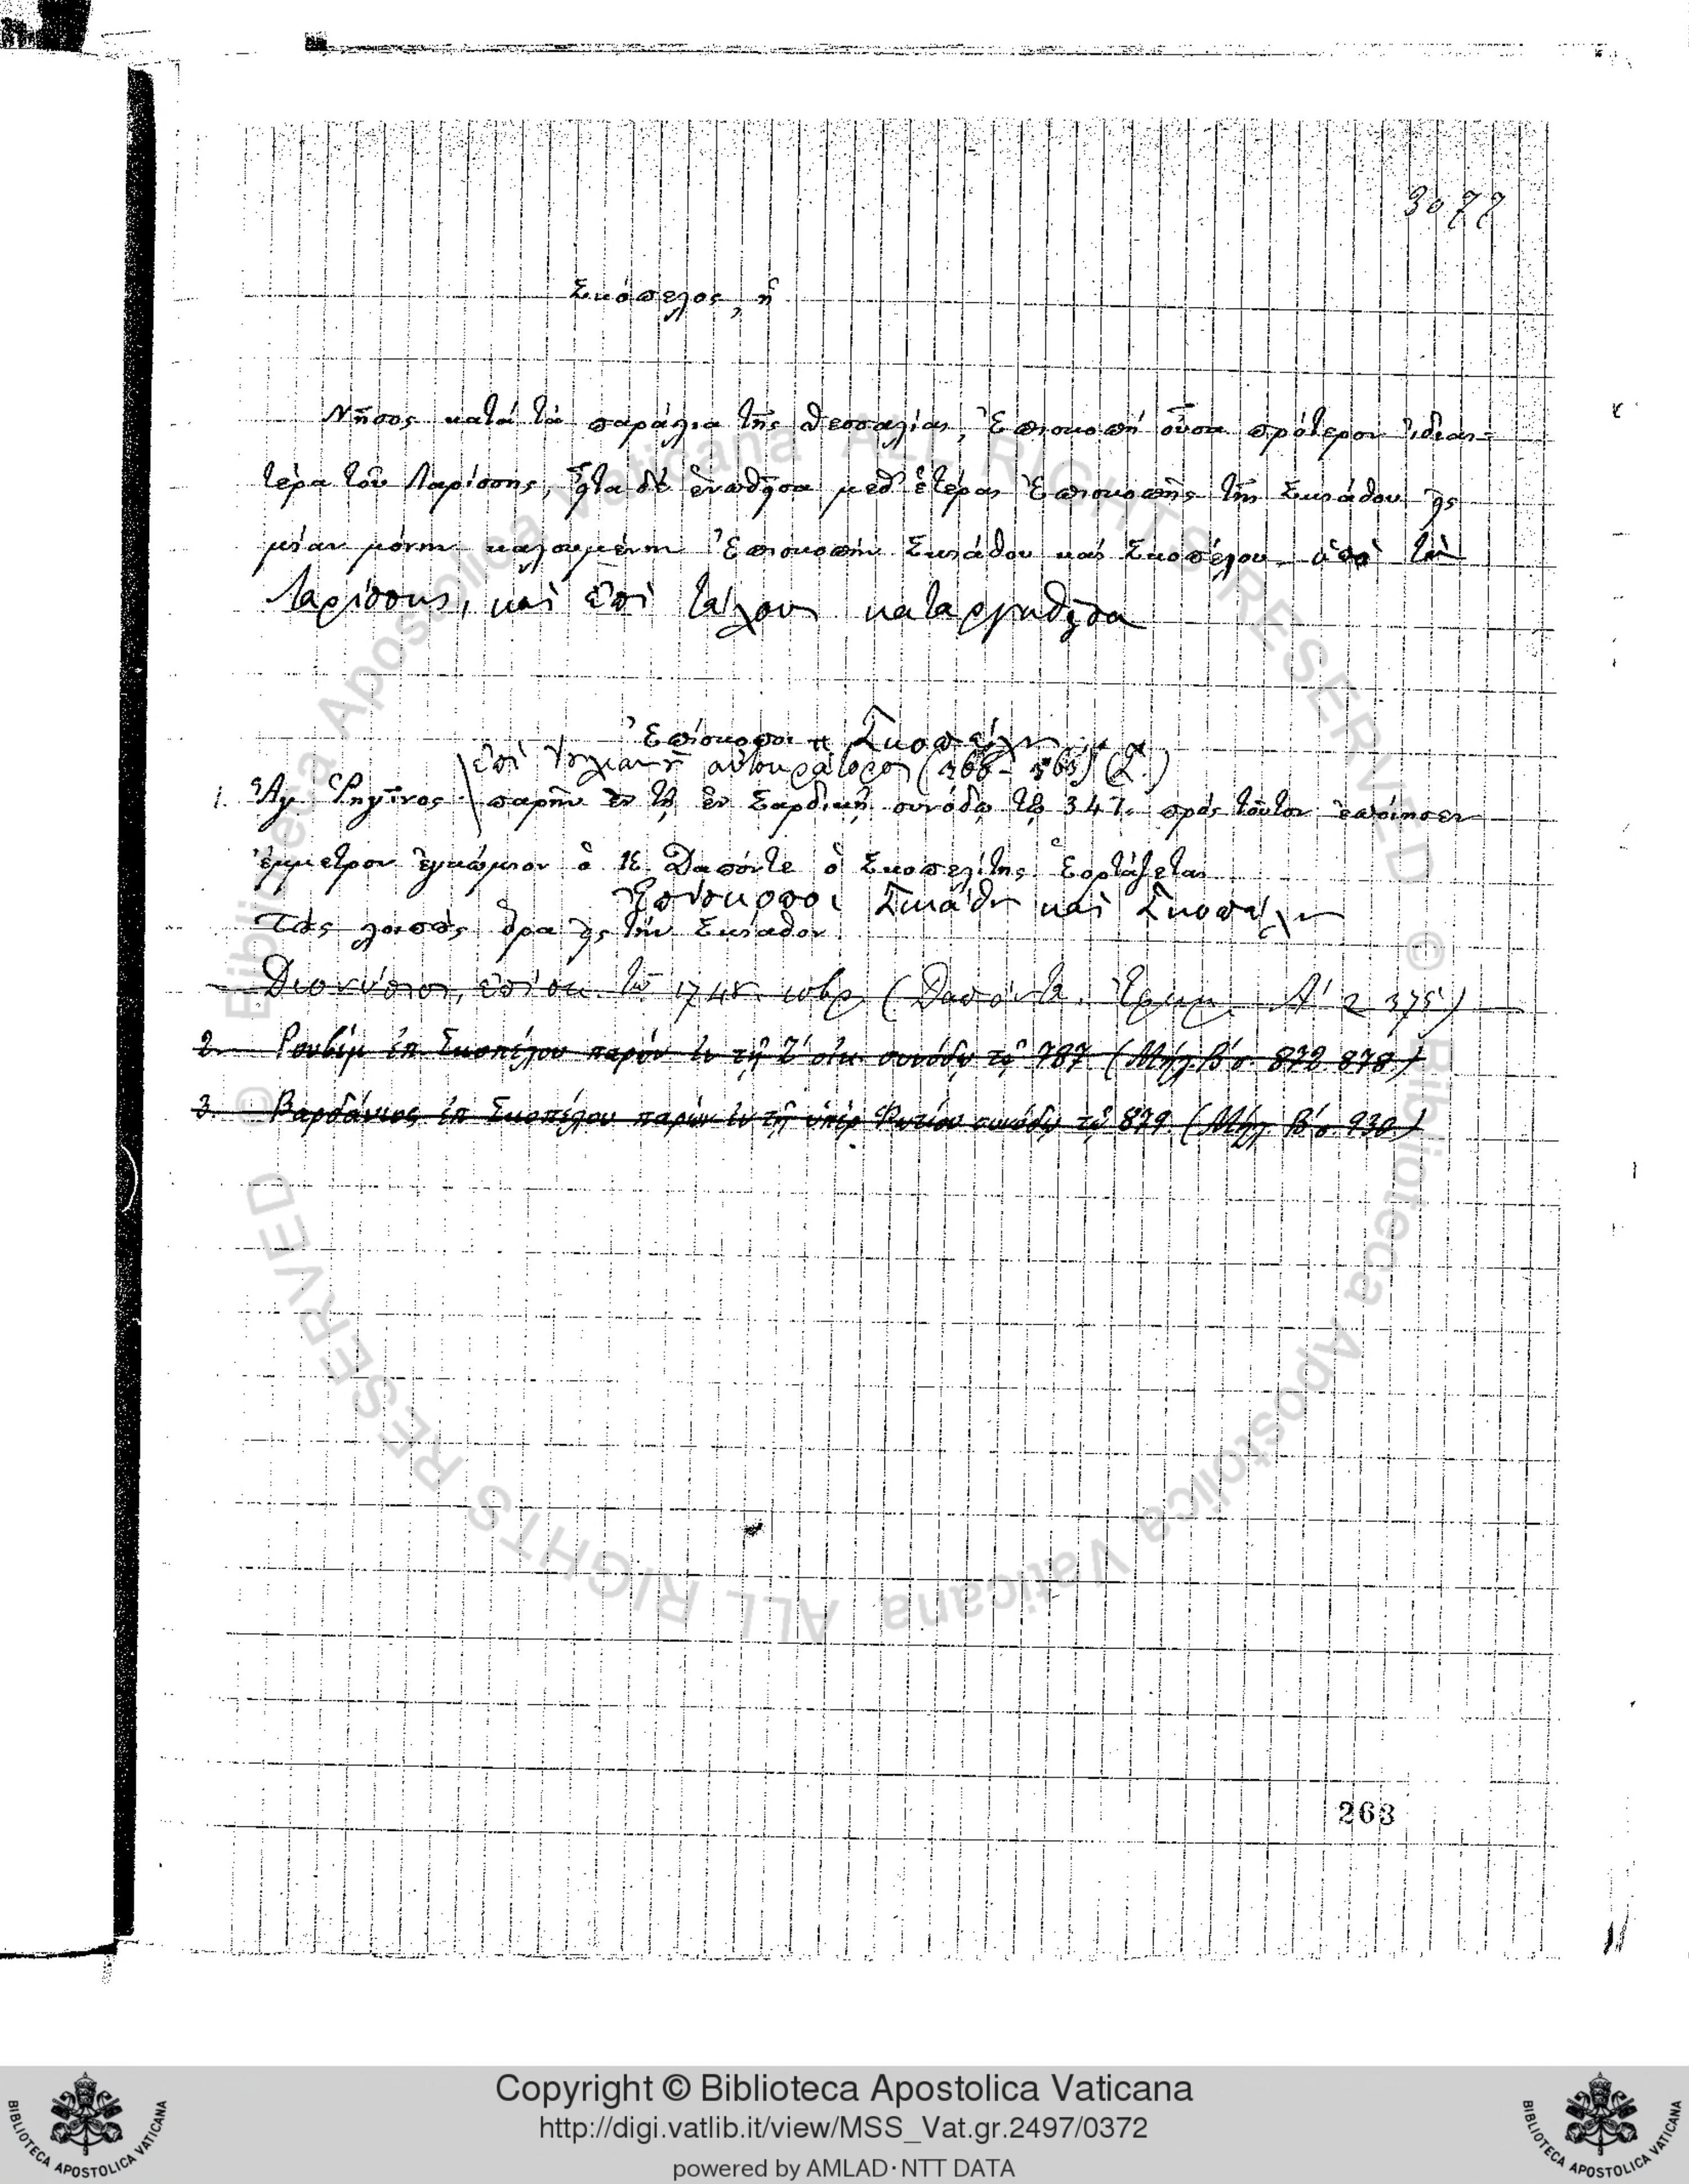 3077
Σκόπελος, ἡ
Νῆσος κατὰ τὰ παράλια τῆς Θεσσαλίας, Ἐπισκοπὴ οὖσα πρότερον ἰδιαι-
τέρα τοῦ Λαρίσσης, εἶτα δὲ ἑνωθεῖσα μεθ' ἑτέρας Ἐπισκοπῆς τῆς Σκιάθου εἰς
μίαν μόνην καλουμένην Ἐπισκοπὴν Σκιάθου καὶ Σκοπέλου ὑπὸ τὸν
Λαρίσσης, καὶ ἐπὶ τέλους καταργηθεῖσα
Ἐπίσκοποι Σκοπέλου
ἐπὶ Ἰουλιανοῦ αὐτοκράτορος
1. Ἅγ. Ῥηγῖνος παρῆν ἐν τῇ ἐν Σαρδικῇ συνόδῳ τῷ 347. πρὸς τοῦτον ἐποίησεν
ἔμμετρον ἐγκώμιον ὁ Κ. Δαπόντε ὁ Σκοπελίτης. Ἑορτάζεται
Ἐπίσκοποι Σκιάθου καὶ Σκοπέλου
Τοὺς λοιποὺς ὅρα εἰς τὴν Σκιάθον
Διονύσιος, ἐπίσκ. τῷ 1748 (Δαπόντε. Α' 375)
2. Ρουβὶμ ἐπ Σκοπέλου παρὼν ἐν τῇ Ζ' οἰκ συνόδῳ τῷ 787 (Μήλ. Β' σ. 872 878)
3. Βαρδάνιος ἐπ Σκοπέλου παρὼν ἐν τῇ ὑπὲρ Φωτίου συνόδῳ τῷ 879 (Μήλ Β' σ. 930)
263
© Biblioteca Apostolica Vaticana ALL RIGHTS RESERVED
© Biblioteca Apostolica Vaticana ALL RIGHTS RESERVED
Copyright © Biblioteca Apostolica Vaticana
http://digi.vatlib.it/view/MSS_Vat.gr.2497/0372
powered by AMLAD·NTT DATA
BIBLIOTECA APOSTOLICA VATICANA
BIBLIOTECA APOSTOLICA VATICANA